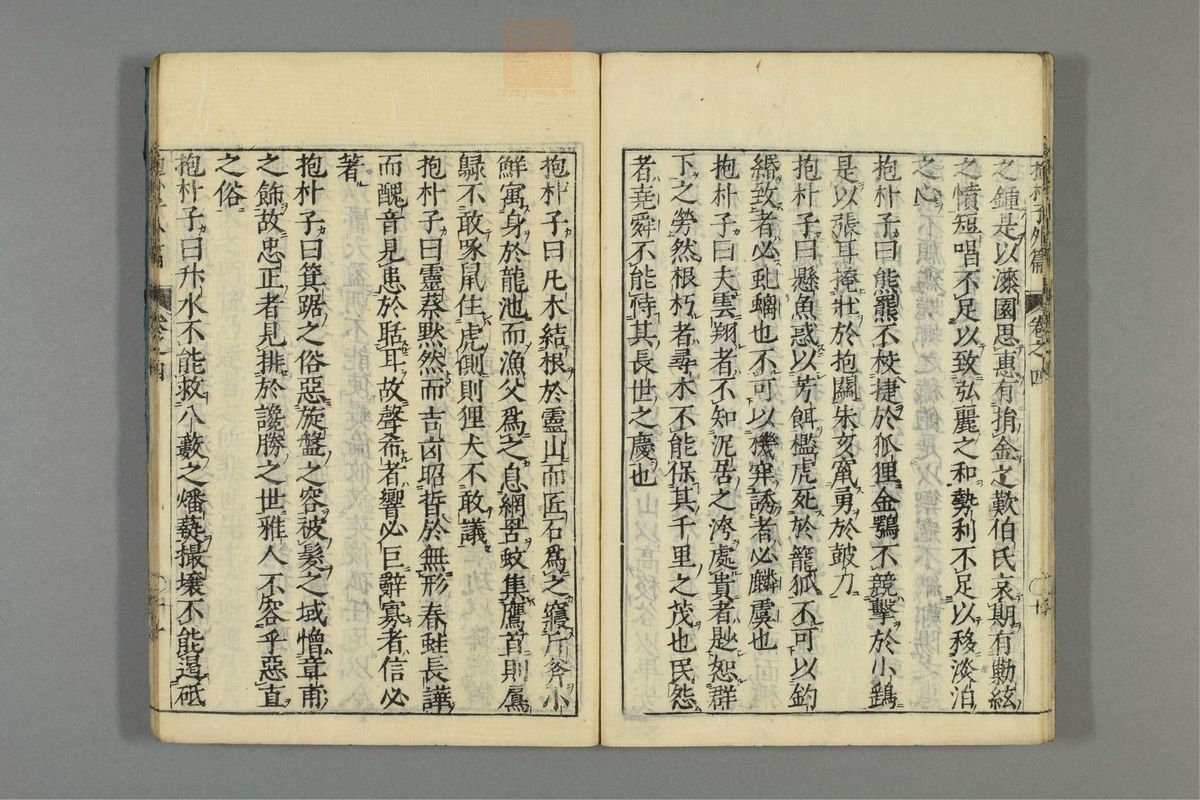 抱朴子外篇 卷之四 十
之鍾是以漆園思惠有捐金之歎伯氏哀期有勦絃
之憤短唱不足以致弘麗之和勢利不足以移淡泊
之心
抱朴子曰熊羆不校捷於狐狸金鶚不競擊於小鷂
是以張耳掩壯於抱關朱亥竄勇於鼓刀
抱朴子曰懸魚惑以芳餌檻虎死於籠狐不可以釣
緡致者必虬螭也不可以機穽誘者必麟虞也
抱朴子曰夫雲翔者不知泥居之洿處貴者尠恕群
下之勞然根朽者尋木不能保其千里之茂也民怨
者堯舜不能恃其長世之慶也
抱朴子曰凡木結根於靈山而匠石爲之寢斤斧小
鮮寓身於龍池而漁父爲之息網罟蚊集鷹首則鳥
䑕不敢啄鼠住虎側則狸犬不敢議
抱朴子曰靈蔡默然而吉凶昭晢於無形春蛙長譁
而醜音見患於聒耳故聲希者響必巨辭寡者信必
著
抱朴子曰箕踞之俗惡旋盤之容被髮之域憎章甫
之飾故忠正者見排於讒勝之世雅人不容乎惡直
之俗
抱朴子曰升水不能救八藪之燔爇撮壤不能遏砥
卷之四 十一